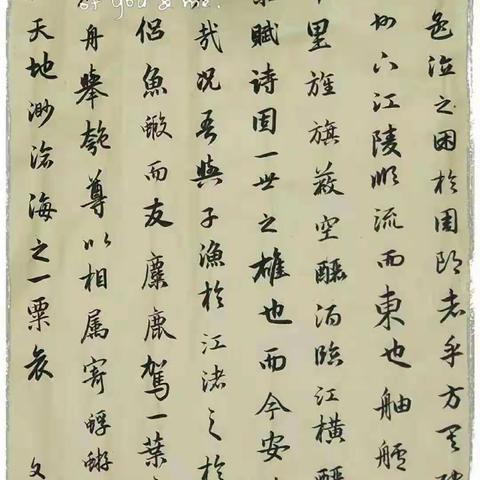 of you & me.
之困於周郎者乎方其
州下江陵順流而東也舳艫
里旌旗蔽空釃酒臨江橫
賦詩固一世之雄也而今安
哉况吾與子漁於江渚之於
侶魚蝦而友麋鹿駕一葉
舟舉匏尊以相属寄蜉蝣
天地渺滄海之一粟哀